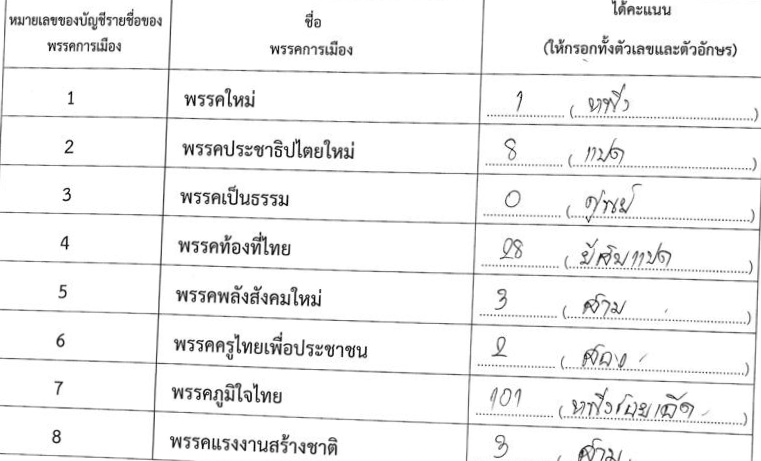 หมายเลขของบัญชีรายชื่อของ
พรรคการเมือง
ชื่อ
พรรคการเมือง
ได้คะแนน
(ให้กรอกทั้งตัวเลขและตัวอักษร)
1 พรรคใหม่ 1 (หนึ่ง)
2 พรรคประชาธิปไตยใหม่ 8 (แปด)
3 พรรคเป็นธรรม 0 (ศูนย์)
4 พรรคท้องที่ไทย 28 (ยี่สิบแปด)
5 พรรคพลังสังคมใหม่ 3 (สาม)
6 พรรคครูไทยเพื่อประชาชน 2 (สอง)
7 พรรคภูมิใจไทย 101 (หนึ่งร้อยเอ็ด)
8 พรรคแรงงานสร้างชาติ 3 (สาม